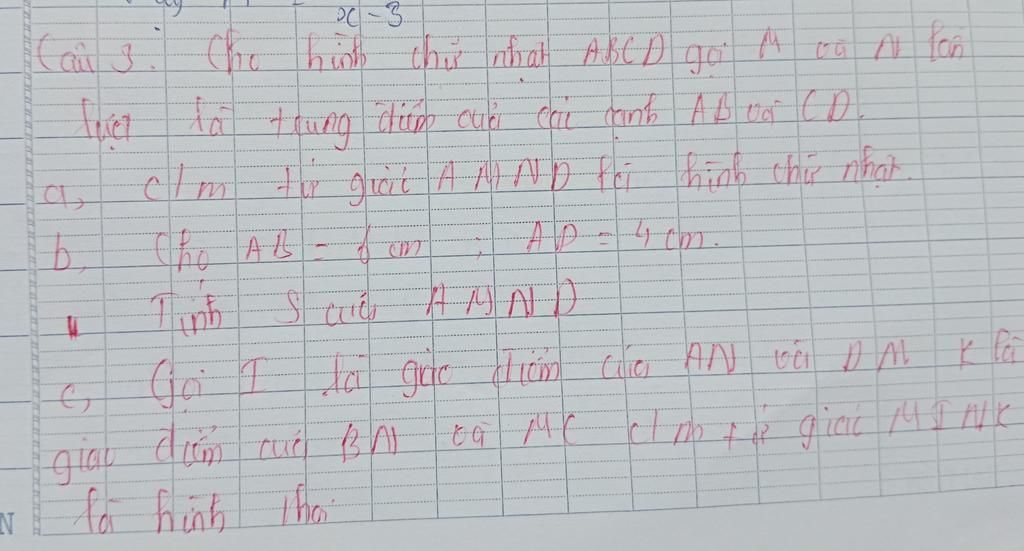 x - 3
Câu 3: Cho hình chữ nhật ABCD gọi M và N lần
lượt là trung điểm của các cạnh AB và CD.
a, c/m tứ giác AMND là hình chữ nhật.
b, Cho AB = 6 cm ; AD = 4 cm.
Tính S của AMND
c, Gọi I là giao điểm của AN và DM K là
giao điểm của BN và MC c/m tứ giác MINK
là hình thoi
N